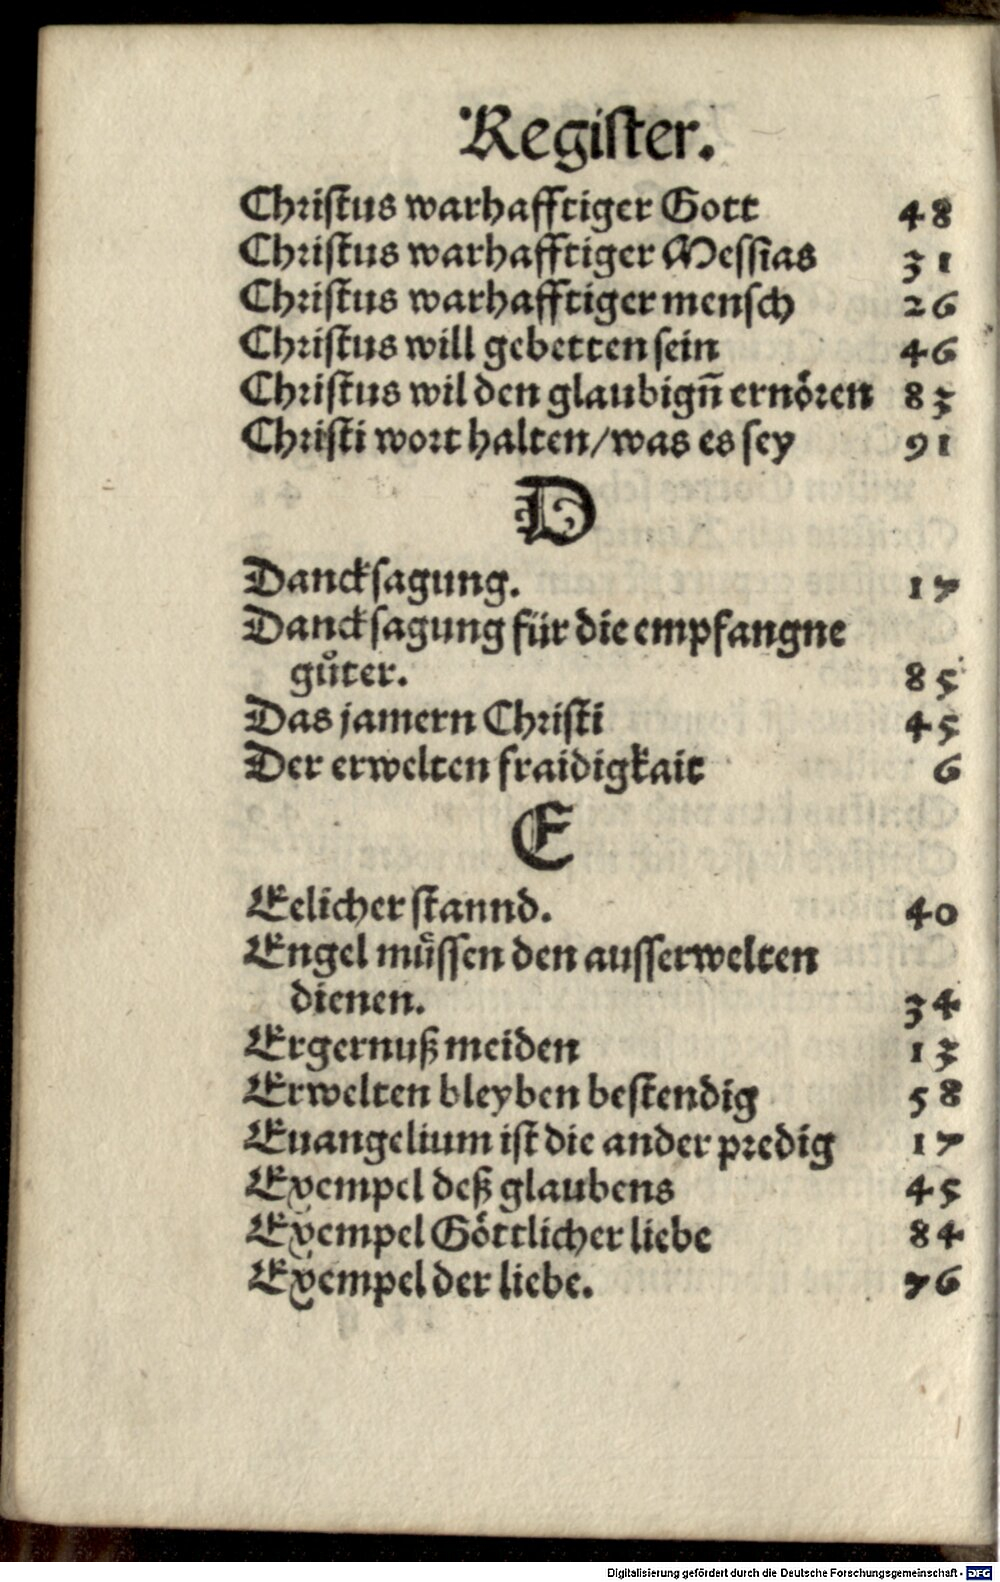 Regiſter.
Chriſtus warhafftiger Gott 48
Chriſtus warhafftiger Meſſias 31
Chriſtus warhafftiger menſch 26
Chriſtus will gebetten ſein 46
Chriſtus wil den glaubign̄ ernören 83
Chriſti wort halten/was es ſey 91
D
Danckſagung. 17
Danckſagung für die empfangne
guͤter. 85
Das jamern Chriſti 45
Der erwelten fraidigkait 6
E
Eelicher ſtannd. 40
Engel müſſen den auſſerwelten
dienen. 34
Ergernuß meiden 13
Erwelten bleyben beſtendig 58
Euangelium iſt die ander predig 17
Exempel deß glaubens 45
Exempel Göttlicher liebe 84
Exempel der liebe. 76
Digitalisierung gefördert durch die Deutsche Forschungsgemeinschaft - DFG